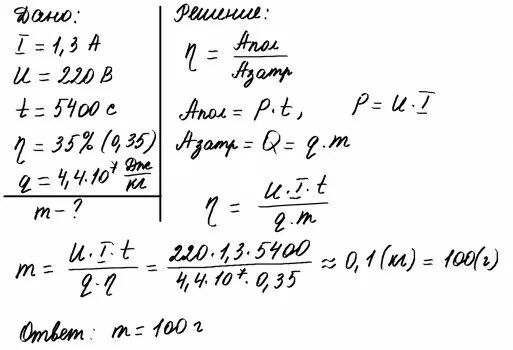 Дано:
I = 1,3 А
U = 220 В
t = 5400 с
η = 35% (0,35)
q = 4,4·10⁷ Дж/кг
m - ?
Решение:
η = Aпол/Aзатр
Aпол = P·t, P = U·I
Aзатр = Q = q·m
η = U·I·t/q·m
m = U·I·t/q·η = 220·1,3·5400/4,4·10⁷·0,35 ≈ 0,1 (кг) = 100 (г)
Ответ: m = 100 г